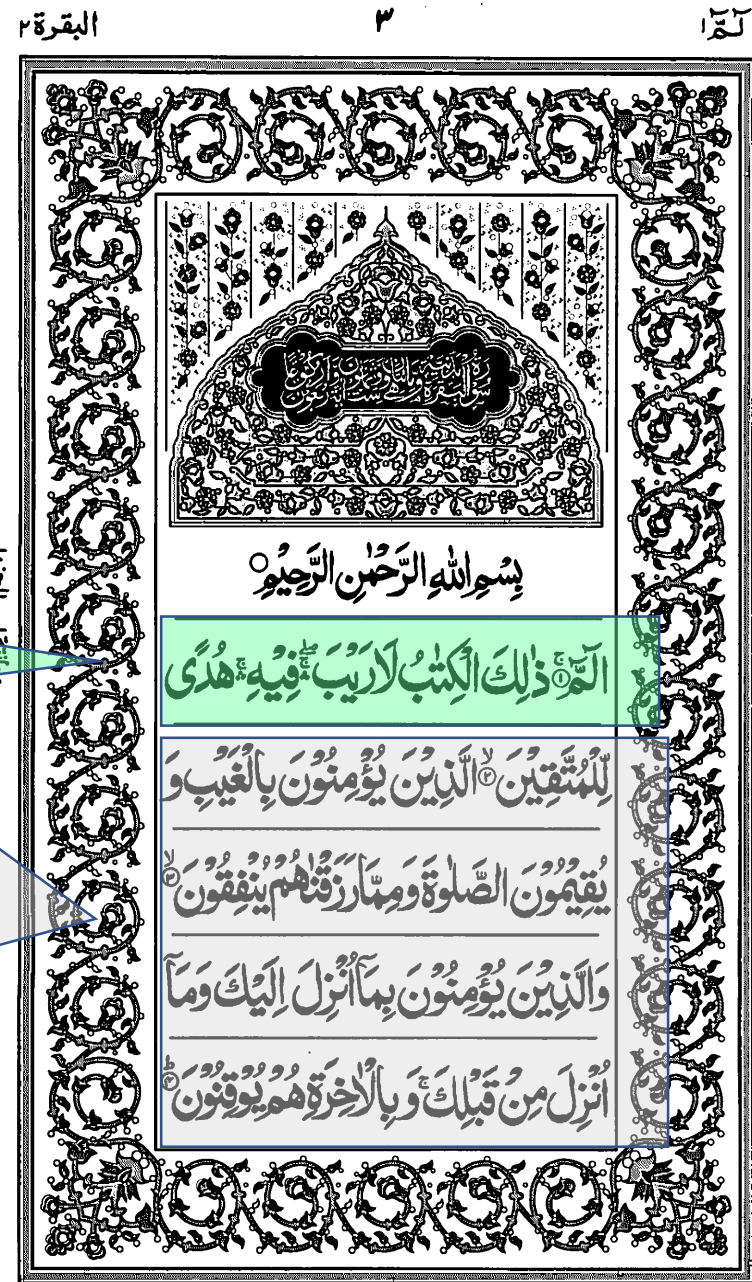 الٓمّٓ ١ ٣ البقرة ٢
بِسْمِ اللهِ الرَّحْمٰنِ الرَّحِيْمِ ○
الٓمّٓ ۚ﴿۱﴾ ذٰلِكَ الْكِتٰبُ لَا رَيْبَ ۛۖ فِيْهِ ۛۚ هُدًى
لِّلْمُتَّقِيْنَ ۙ﴿۲﴾ الَّذِيْنَ يُؤْمِنُوْنَ بِالْغَيْبِ وَ
يُقِيْمُوْنَ الصَّلٰوةَ وَمِمَّا رَزَقْنٰهُمْ يُنْفِقُوْنَ ۙ﴿۳﴾
وَالَّذِيْنَ يُؤْمِنُوْنَ بِمَآ اُنْزِلَ اِلَيْكَ وَمَآ
اُنْزِلَ مِنْ قَبْلِكَ ۚ وَ بِالْاٰخِرَةِ هُمْ يُوْقِنُوْنَ ؕ﴿۴﴾